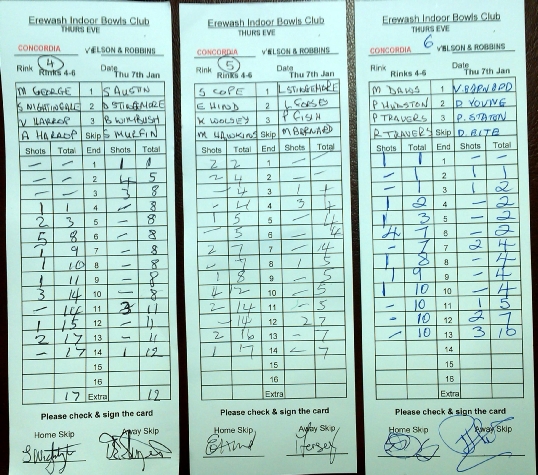 Erewash Indoor Bowls Club
THURS EVE
CONCORDIA V ELSON & ROBBINS
Rink 4 Date
Rinks 4-6 Thu 7th Jan
M GEORGE 1 S AUSTIN
S NIGHTINGALE 2
V HARROP 3 B WIMBUSH
A HARROP Skip S MURFIN
Shots Total End Shots Total
- - 1 1 1
- - 2 4 5
- - 3 3 8
1 1 4 - 8
2 3 5 - 8
5 8 6 - 8
1 9 7 - 8
1 10 8 - 8
1 11 9 - 8
3 14 10 - 8
- 14 11 3 11
1 15 12 - 11
2 17 13 - 11
- 17 14 1 12
15
16
17 Extra 12
Please check & sign the card
Home Skip Away Skip
Erewash Indoor Bowls Club
THURS EVE
CONCORDIA V ELSON & ROBBINS
Rink 5 Date
Rinks 4-6 Thu 7th Jan
S COPE 1 L STINGEMORE
E HIND 2
K WOLSEY 3 P FISH
M HAWKINS Skip M BARNARD
Shots Total End Shots Total
2 2 1 - -
2 4 2 - -
- 4 3 1
- 4 4 3
1 5 5 - 4
- 5 6 - 4
2 7 7 - 4
- 7 8 1 5
1 8 9 - 5
4 12 10 - 5
2 14 11 - 5
- 14 12 2 7
2 16 13 - 7
1 17 14 - 7
15
16
Extra
Please check & sign the card
Home Skip Away Skip
EHind
Erewash Indoor Bowls Club
THURS EVE
CONCORDIA V ELSON & ROBBINS
Rink 6 Date
Rinks 4-6 Thu 7th Jan
M DAVIS 1 V BARNARD
P HUNSTON 2 D YOUNG
P TRAVERS 3 P. STATON
R TRAVERS Skip D. BITE
Shots Total End Shots Total
1 1 1 - -
- 1 2 1 1
- 1 3 1 2
1 2 4 - 2
1 3 5 - 2
4 7 6 - 2
- 7 7 2 4
1 8 8 - 4
1 9 9 - 4
1 10 10 - 4
- 10 11 1 5
- 10 12 2 7
- 10 13 3 10
14
15
16
Extra
Please check & sign the card
Home Skip Away Skip